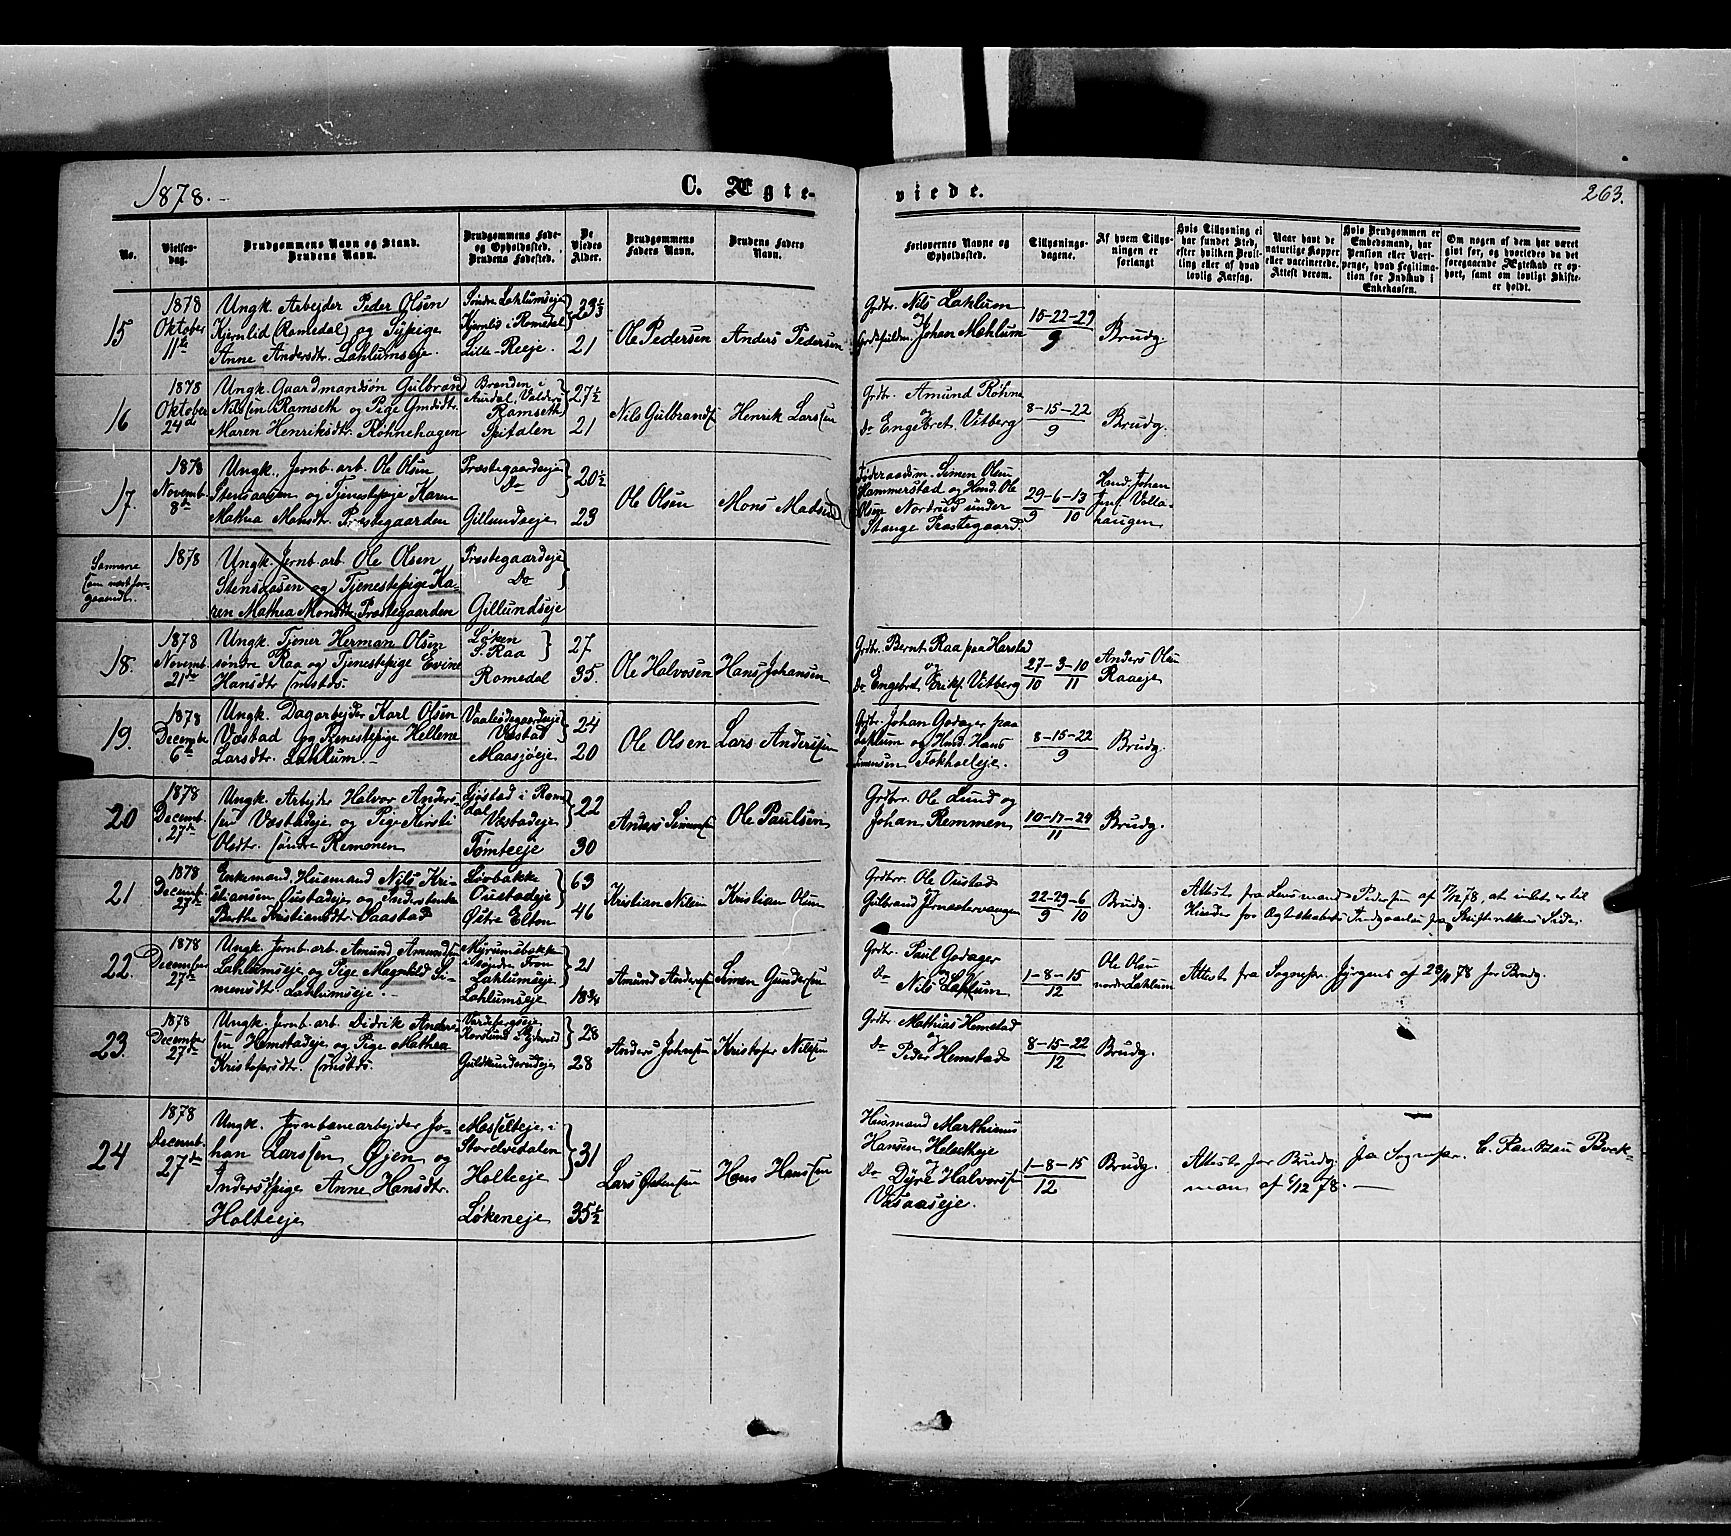 1878.
C. Ægte-
viede.
263.
No.
Vielses-
dag.
Brudgommens Navn og Stand.
Brudens Navn.
Brudgommens Føde-
og Opholdsted.
Brudens Fødested.
De
Viedes
Alder.
Brudgommens
Faders Navn.
Brudens Faders
Navn.
Forlovernes Navne og
Opholdsted.
Tillysnings-
dagene.
Af hvem Tillys-
ningen er
forlangt
Hvis Tillysning ei
har fundet Sted,
efter hvilken Bevil-
ling eller af hvad
lovlig Aarsag.
Naar havt de
naturlige Kopper
eller vaccinerede.
Attest derom.
Hvis Brudgommen er
Embedsmand, har
Pension eller Vart-
penge, hvad Legitima-
tion for Indskud i
Enkekassen.
Om nogen af dem har været
gift før, og hvorledes da det
foregaaende Ægteskab er op-
hørt, samt om lovligt Skifte
er holdt.
15
1878
Oktober
11te
Ungk. Arbejder Peder Olsen
Kjernlid (Romedal) og Pige
Anne Andersdtr. Lahlumseje.
Søndre Lahlumseje
Kjernlid i Romedal
Lille-Reeje.
23½
21
Ole Pedersen
Anders Pedersen
Grdbr. Nils Lahlum
og Johan Mæhlum
15-22-29
9
Brudg.
16
1878
Oktober
24de
Ungk. Gaardmandsøn Gulbrand
Nilssen Ramseth og Pige Gmdsdtr.
Maren Henriksdtr. Røhnehagen
Brenden i
Aurdal, Valders
Ramseth
Spitalen
27½
21
Nils Gulbrands.
Henrik Larssen
Grdbr. Amund Røhne
og
Do Engebret Vitberg
8-15-22
9
Brudg.
17.
1878
Novemb.
8de
Ungk. Jernb. arb. Ole Olsen
Stensaasen og Tjenestepige Karen
Mathea Monsdtr. Præstegaarden
Præstegaardseje
Do
Gillundseje
20½
23
Ole Olsen
Mons Madsen
Føderaadsm. Simen Olsen
Hammerstad og Hmd. Ole
Olsen Nordrud under
Stange Præstegaard.
29-6-13
9 10
Hmd. Johan
Volla-
haugen
Samme
som næst for-
gaaende.
1878
Ungk. Jernb. arb. Ole Olsen
Stensaasen og Tjenestepige Ka-
ren Mathea Monsdtr. Præstegaarden
Præstegaardseje
Do
Gillundseje
18.
1878
Novemb.
21de
Ungk. Tjener Herman Olsen
søndre Raa og Tjenestepige Eline
Hansdtr. smstds.
Løken
S. Raa
Romedal
27
35
Ole Halvorsen
Hans Johansen
Grdbr. Bernt Raa paa Harstad
og
Do Engebret Eriks. Vitberg
27-3-10
10 11
Anders Olsen
Raaeje
19.
1878
December
6te
Ungk. Dagarbejder Karl Olsen
Vestad og Tjenestepige Hellene
Larsdtr. Lahlum.
Vaalisdegaardseje
Vestad
Maasjøeje
24
20
Ole Olsen
Lars Anderssen
Grdbr. Johan Godager paa
Lahlum og Hmd. Hans
Simensen Fokholeje.
8-15-22
9
Brudg.
20
1878
Decemb.
27de
Ungk. Arbejdr Halvor Anders-
sen Vestadeje og Pige Kirsti
Olsdtr. søndre Remmen
Ljøstad i Rome
dal
Vestadeje
Tomteeje
22
30
Anders Simens.
Ole Paulsen
Grdbrr. Ole Lund og
Johan Remmen
10-17-24
11
Brudg.
21
1878
Decemb.
27de
Enkemand, Husmand Nils Kri-
stiansen Oustadeje og Inderstenke
Berthe Kristiansdtr. Saastad
Livbakke
Oustadeje
Østre Elton
63
46
Kristian Nilsen
Kristian Olsen
Grdbrr. Ole Oustad
Gulbrand Jernsætervangen
22-29-6
9 10
Brudg.
Attest fra Lensmand Pedersen af 7/12 78, at intet er til
Hinder for Ægteskabets Indgaaelse fra Skifterettens Side.
22.
1878
December
27de
Ungk. Jernb. arb. Amund Amundsen
Lahlumseje og Pige Magnhild Si-
mensdtr. Lahlumseje.
Myrumsbakke
i søndre Fron
Lahlumseje
Lahlumseje
21
18¾
Amund Andersen
Simen Gundersen
Grdbr. Paul Godager
og
Do Nils Lahlum
1-8-15
12
Ole Olsen
nordre Lahlum
Attest fra Sognepr. Jørgens af 23/11 78 for Brudg.
23.
1878
December
27de
Ungk. Jernb. arb. Didrik Anders-
sen Hemstadeje og Pige Mathea
Kristofersdtr. smstds.
28
28
Anders Johnsen
Kristofer Nilssen
Grdbr. Mathias Hemstad
og
Do Peder Hemstad
8-15-22
12
Brudg.
24
1878
Decemb.
27de
Ungk. Jernbanearbejder Jo-
han Larssen Øjen og
Inderstpige Anne Hansdtr.
Holteeje
Masselteje i
Størdalen
Holteeje
Løkeneje
31
35½
Lars
Hans Hanssen
Husmand Marthinus
Hansen Helsetheje
og
Do Dyre Halvorss.
Vesaaseje.
1-8-15
12
Brudg.
Attest for Brudg. fra Sognepr. C. Beck-
man af 6/12 78.